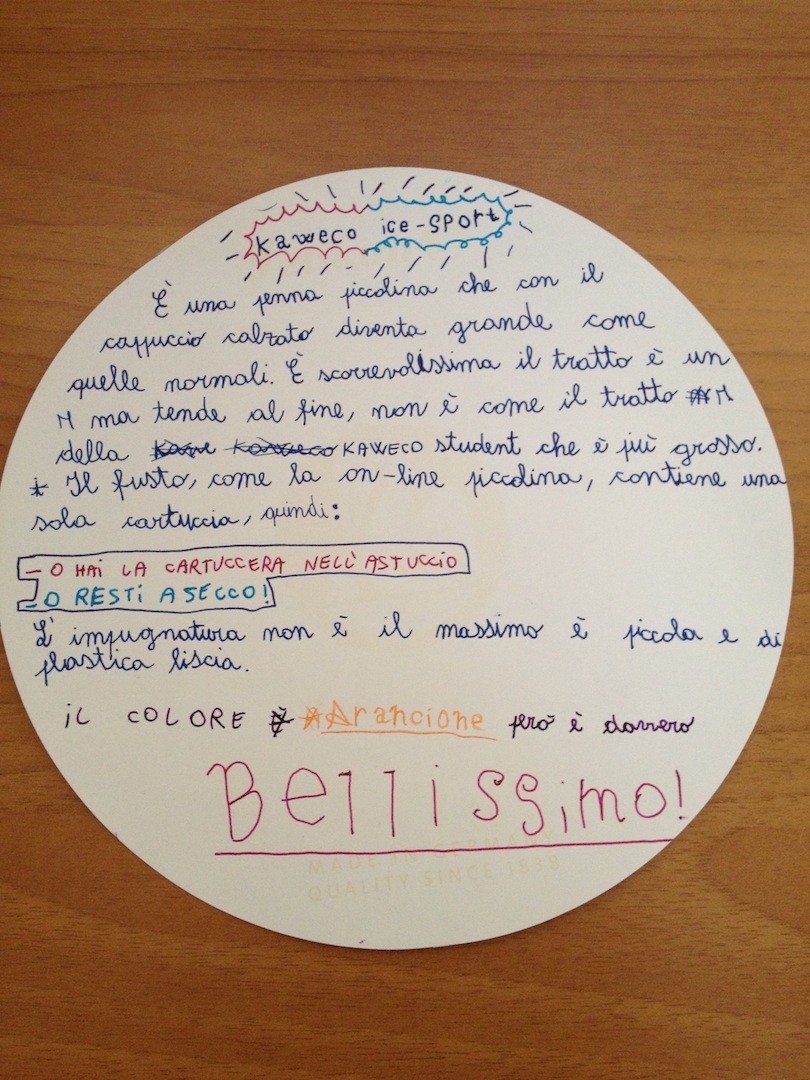 kaweco ice-sport
È una penna piccolina che con il
cappuccio calzato diventa grande come
quelle normali. È scorrevolissima il tratto è un
M ma tende al fine, non è come il tratto M
della KAWECO student che è più grosso.
Il fusto, come la on-line piccolina, contiene una
sola cartuccia, quindi:
- O HAI LA CARTUCCERA NELL'ASTUCCIO
- O RESTI A SECCO!
L'impugnatura non è il massimo è piccola e di
plastica liscia.
iL COLORE Arancione però è davvero
Bellissimo!
MADE IN GERMANY
QUALITY SINCE 1838